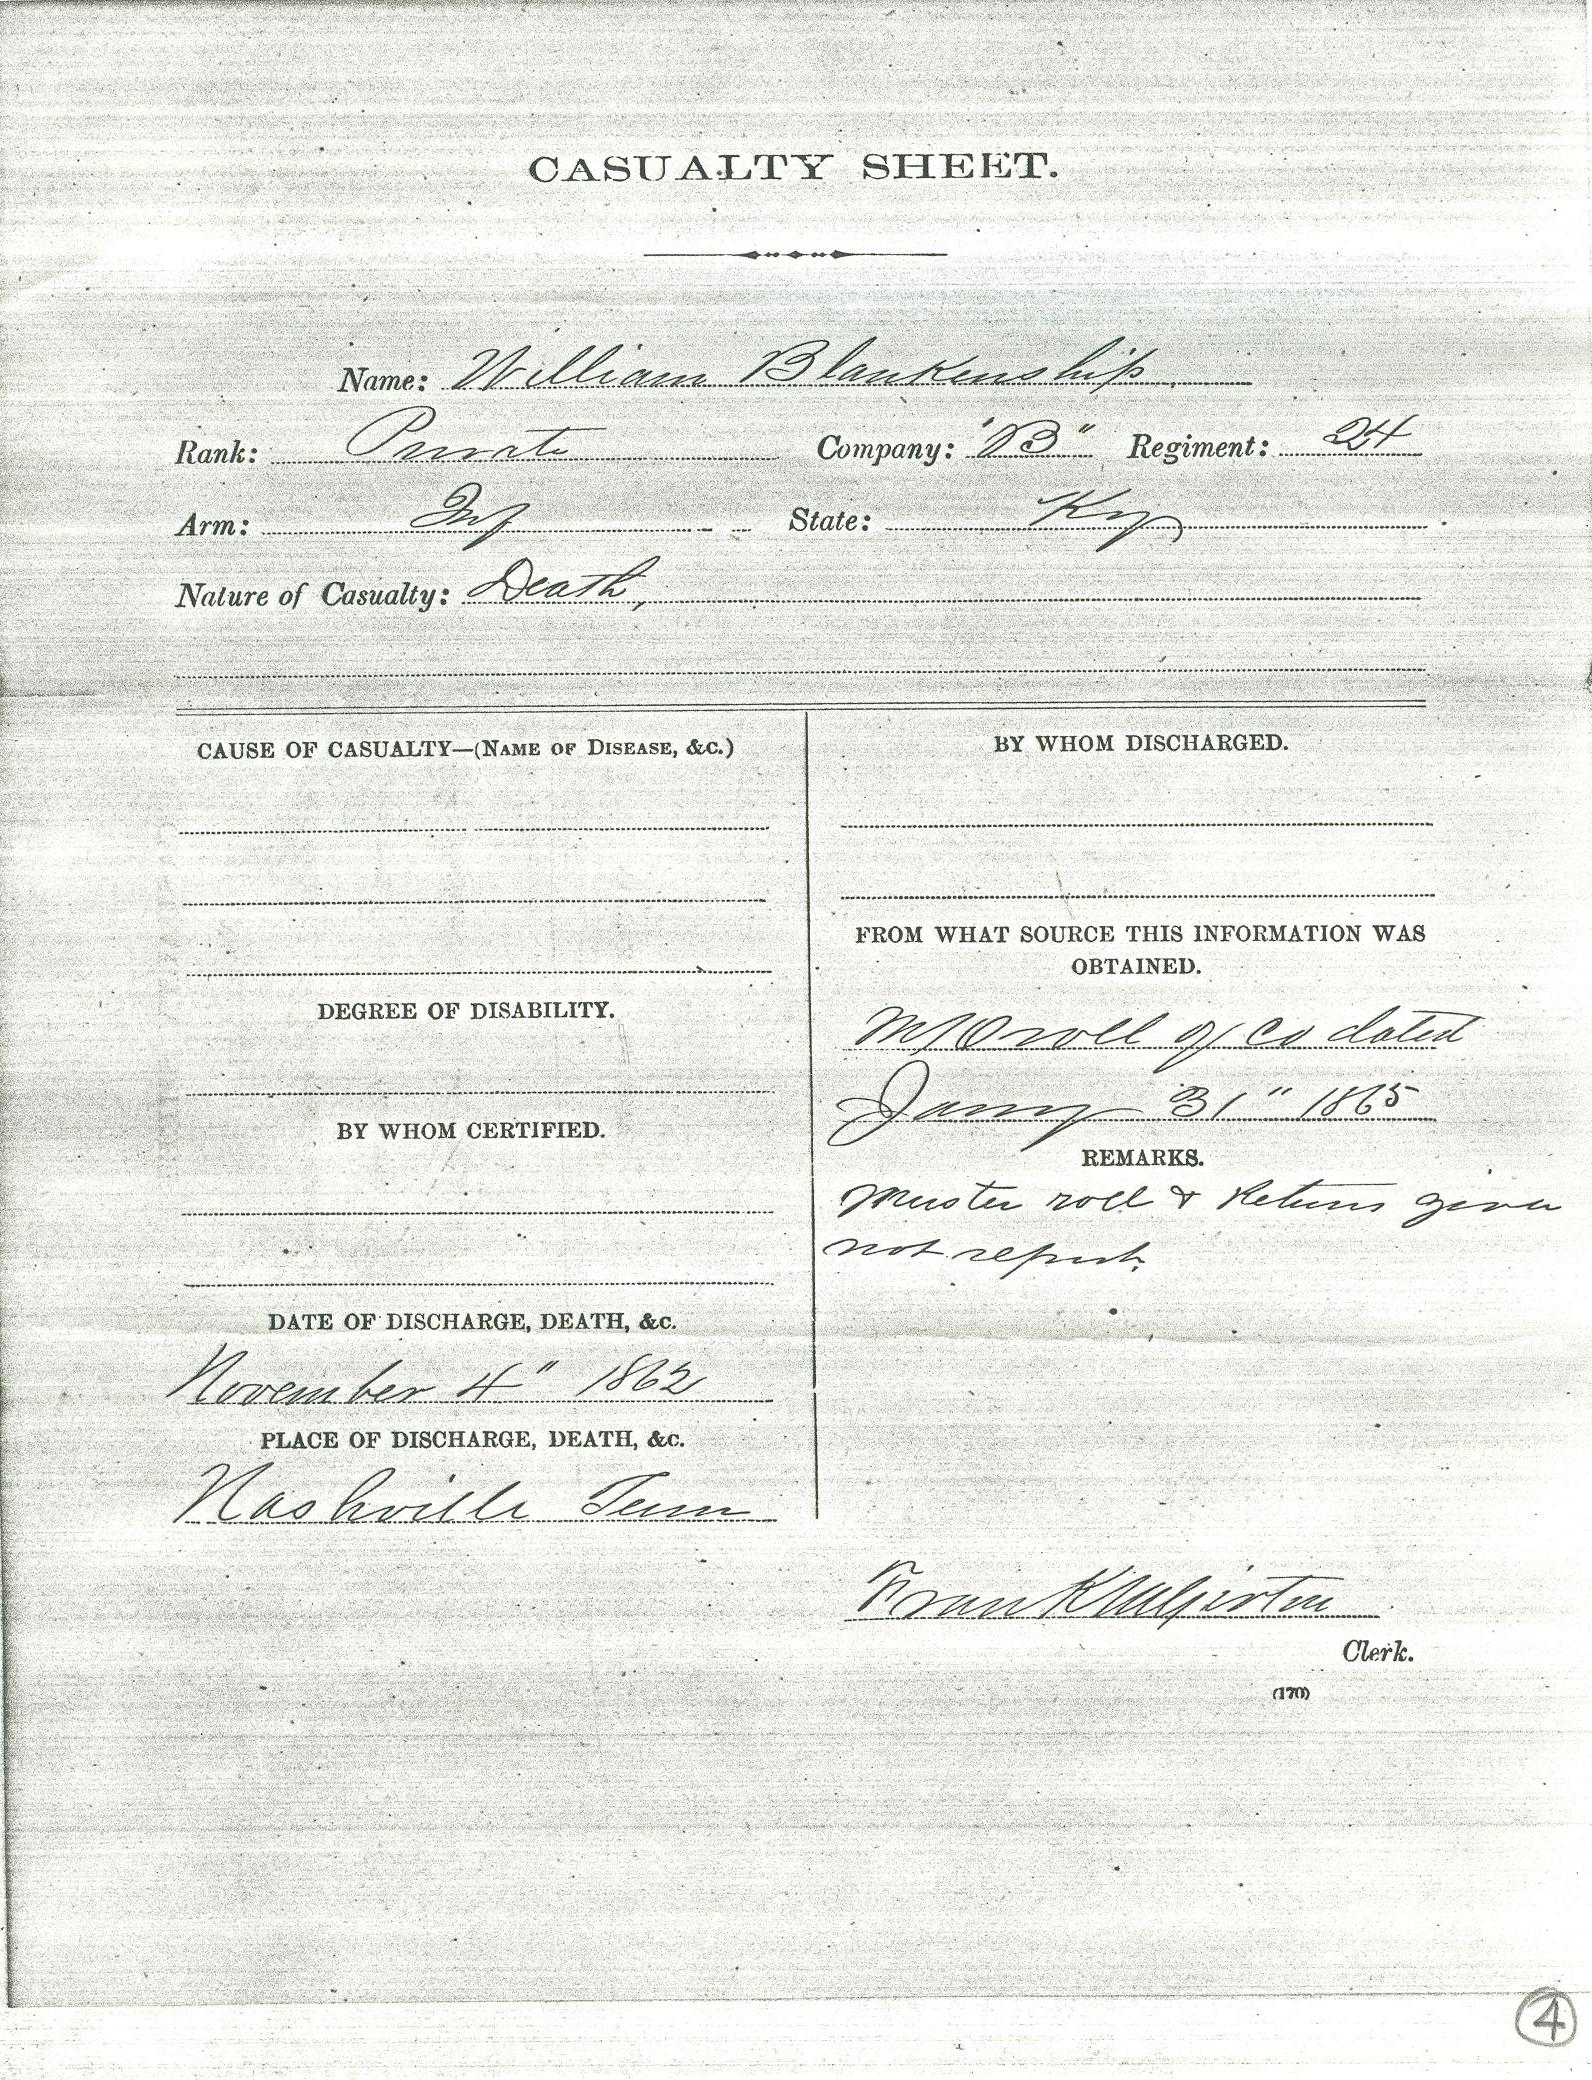 CASUALTY SHEET.
Name: William Blankenship
Rank: Private Company: "B" Regiment: 24
Arm: Inf State: Ky
Nature of Casualty: Death,
CAUSE OF CASUALTY—(NAME OF DISEASE, &C.)
DEGREE OF DISABILITY.
BY WHOM CERTIFIED.
DATE OF DISCHARGE, DEATH, &C.
November 4" 1862
PLACE OF DISCHARGE, DEATH, &C.
Nashville Tenn
BY WHOM DISCHARGED.
FROM WHAT SOURCE THIS INFORMATION WAS
OBTAINED.
M/O roll of Co dated
Jany 31" 1865
REMARKS.
Muster roll & Returns
not report.
Frank
Clerk.
(170)
4